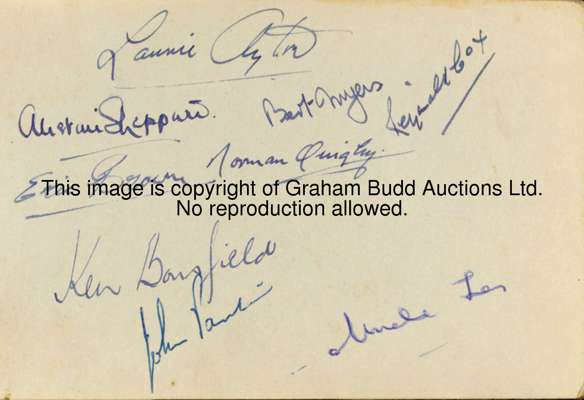 Laurie Ayton
Alistair Sheppard.
Bert Myers
Reginald Cox
Norman Quigley.
This image is copyright of Graham Budd Auctions Ltd.
No reproduction allowed.
Ken Bousfield
John
Uncle Les